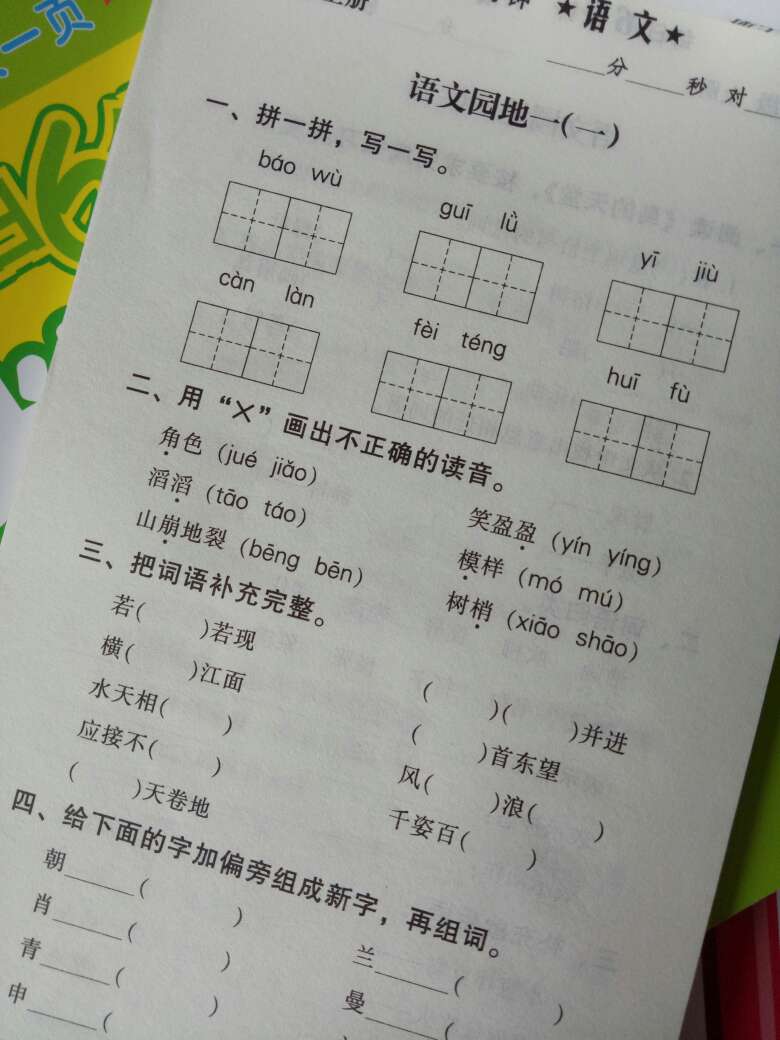 一页
上册
钟
★语 文★
分
秒 对
语文园地一(一)
一、拼一拼，写一写。
báo wù guī lǜ yī jiù
càn làn fèi téng huī fù
二、用“╳”画出不正确的读音。
角色（jué jiǎo） 笑盈盈（yín yíng）
滔滔（tāo táo） 模样（mó mú）
山崩地裂（bēng bēn） 树梢（xiāo shāo）
三、把词语补充完整。
若( )若现 ( )( )并进
横( )江面 ( )首东望
水天相( ) 风( )浪( )
应接不( ) 千姿百( )
( )天卷地
四、给下面的字加偏旁组成新字，再组词。
朝______( ) 兰______( )
肖______( ) 曼______(
青______( )
申______(